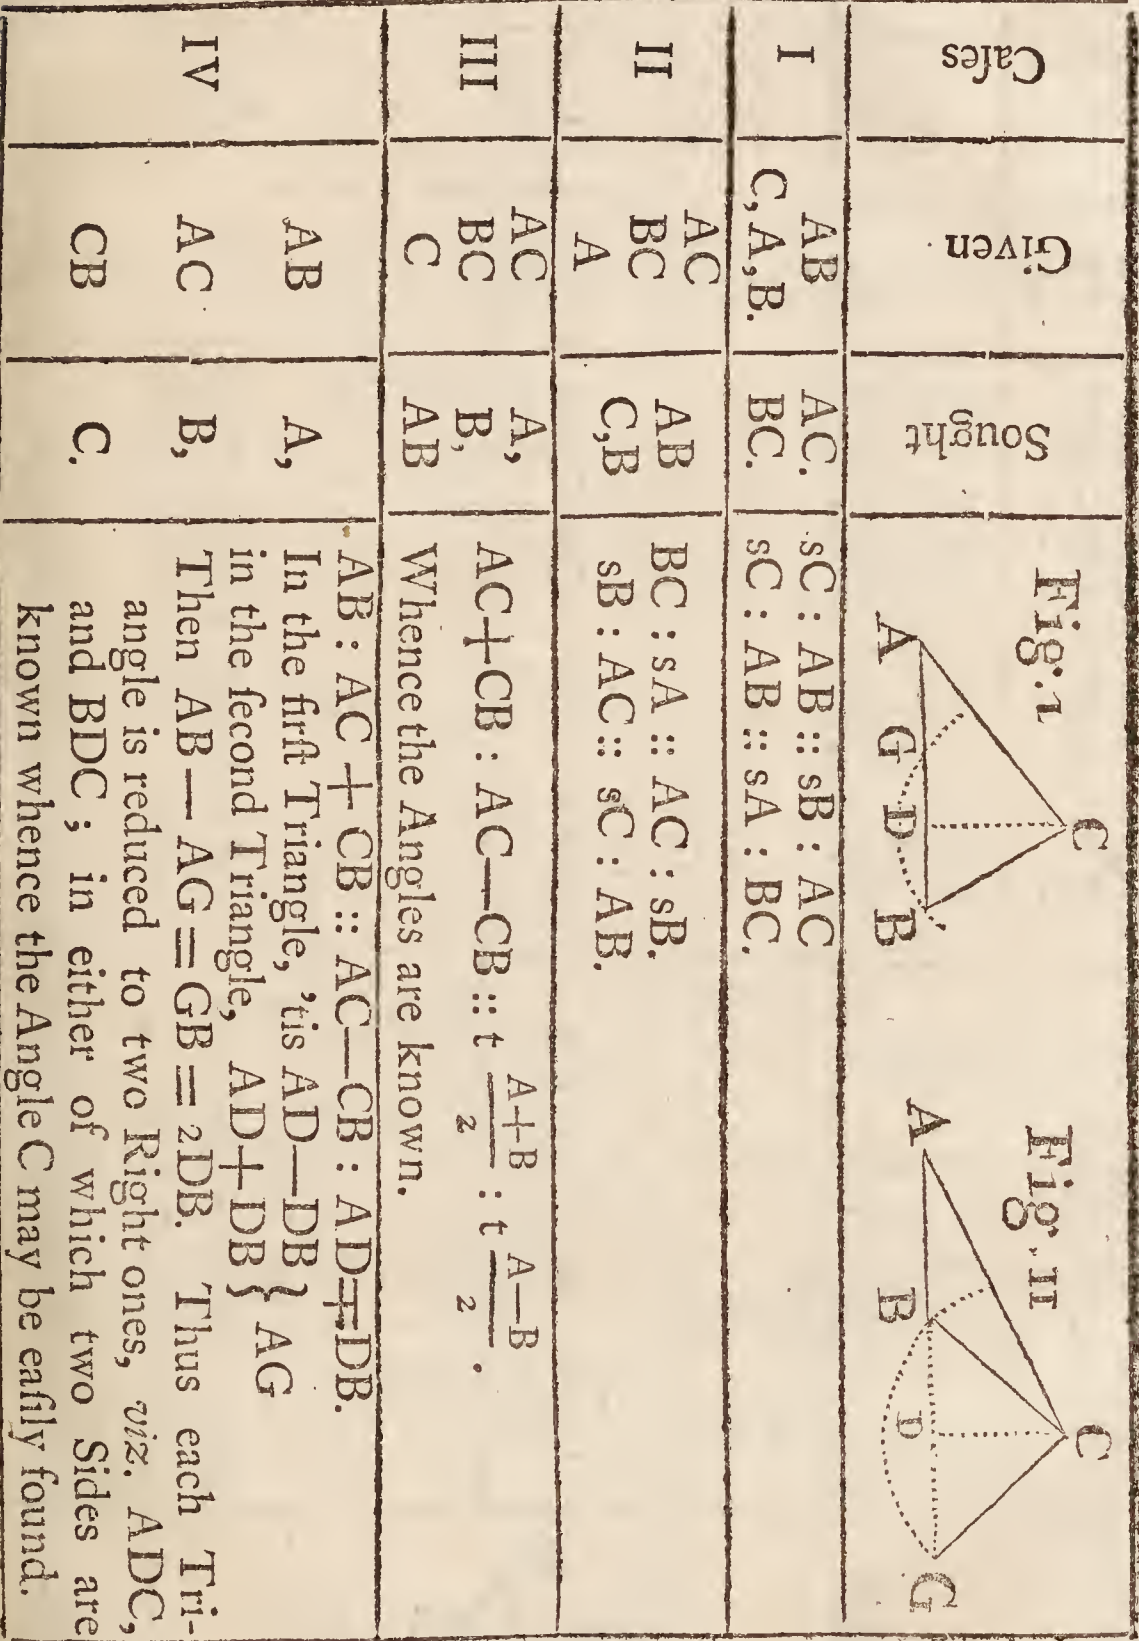 Caſes
Given
Sought
Fig. I
A
G
D
B
C
Fig. II
A
B
D
G
C
I
AB
C, A, B.
AC.
BC.
sC : AB :: sB : AC
sC : AB :: sA : BC.
II
AC
BC
A
AB
C,B
BC : sA :: AC : sB.
sB : AC :: sC : AB.
III
AC
BC
C
A,
B,
AB
AC+CB : AC—CB :: t A+B/2 : t A—B/2.
Whence the Angles are known.
IV
AB
AC
CB
A,
B,
C.
AB : AC + CB :: AC—CB : AD∓DB.
In the firſt Triangle, 'tis AD—DB } AG
in the ſecond Triangle, AD+DB }
Then AB — AG = GB = 2DB. Thus each Tri-
angle is reduced to two Right ones, viz. ADC,
and BDC ; in either of which two Sides are
known whence the Angle C may be eaſily found.